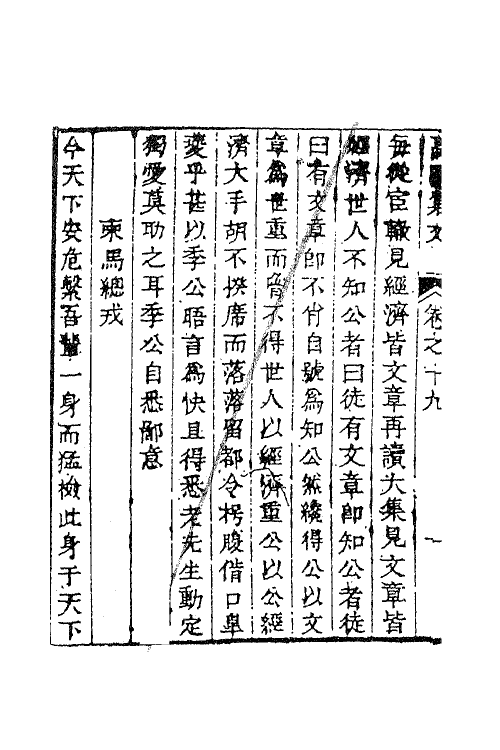 卷之十九
一
每從宦轍見經濟皆文章再讀大集見文章皆
經濟世人不知公者曰徒有文章即知公者徒
曰有文章即不佞自號為知公然纔得公以文
章為世重而不得世人以經濟重公以公經
濟大手胡不揆席而落落留都令枵腹借口臯
夔乎甚以季公晤言為快且得悉老先生動定
獨愛莫助之耳季公自悉鄙意
柬馬總戎
今天下安危繫吾輩一身而猛檢此身于天下